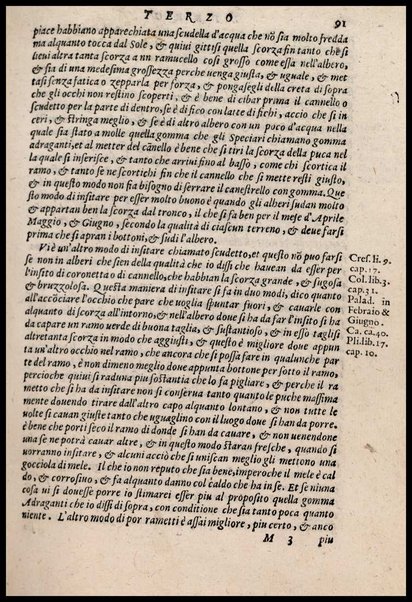 TERZO 91
piace habbiano apparechiata una scudella d'acqua che nõ sia molto fredda
ma alquanto tocca dal Sole, & quiui gittisi quella scorza fin tanto che si
lieui altra tanta scorza a un ramucello cosi grosso come essa nell'albero,
& sia di una medesima grossezza perche uenga giusta, & uguale, & met
tasi senza fatica o zepparla per forza, & pongasegli della creta di sopra
che gli occhi non restino coperti, & è bene di cibar prima il cannello o
scudetto per la parte di dentro, se è di fico con latte di fichi, accio che si in
ceri, & stringa meglio, & se è di altro albero con un poco d'acqua nella
quale sia stato a molle quella gomma che gli Speciari chiamano gomma
adraganti, et al metter del cãnello è bene che si tiri la scorza della puca nel
la quale si inserisce, & tanto che arriui fino al basso, come chi scortica il
ramo, & tanto se ne scortichi fin che il cannello che si mette resti giusto,
& in questo modo non fia bisogno di serrare il canestrello con gomma. Que
sto modo di insitare per esser molto buono è quando gli alberi sudan molto
& appartan ben la scorza dal tronco, il che si fa ben per il mese d'Aprile
Maggio, & Giugno, secondo la qualità di ciascun terreno, & deue farsi
prima che si apran i bottoni, & sudi l'albero.
Vi è un'altro modo di insitare chiamato scudetto, et questo nõ puo farsi
se non in alberi che sien della qualità che io dissi che hauean da esser per
l'insito di coronetta o di cannello, che habbian la scorza grande, & sugosa
& bruzzolosa. Questa maniera di insitare si fa in duo modi, dico quanto
all'accõciare l'occhio che pare che uoglia spuntar fuori, & cauarle con
alquanto di scorza all'intorno, & nell'albero doue si ha da far l'insito si ha
da capare un ramo uerde di buona taglia, & sustantioso, & in esso taglisi
altretanta scorza in modo che aggiusti, & questo è migliore doue appun
ta un'altro occhio nel ramo, che ancora che si possa fare in qualunche par
te del ramo, è non dimeno meglio doue appunta bottone per sotto il ramo,
percioche quiui si raduna piu sostantia che lo fa pigliare, & perche il ra
netto che si ha da insitare non si conserua tanto quanto le puche massima
mente douendo tirare dall'altro capo alquanto lontano, & non tutte le
uolte si cauan giuste tanto che uguaglino con il luogo doue si han da porre.
è bene che porti seco il ramo di donde si han da cauare, & non uenendone
una se ne potrà cauar altre, & in questo modo staran fresche, quando si
uorranno insitare, & alcuni acciò che si uniscan meglio gli mettono una
gocciola di mele. Il che io non reputo che sia bene, imperoche il mele è cal
do, & corrosino, & fa alquanto danno col caldo che ha in se. Et se niuna
cosa ui si douesse porre io stimarei esser piu al proposito quella gomma
Adraganti che io dissi di sopra, con conditione che sia tanto poca quanto
niente. L'altro modo di por rametti è assai migliore, piu certo, & anco
Cref. li. 9.
cap. 17.
Col. lib. 3.
cap. 31.
Palad. in
Febraio &
Giugno.
Ca. ca. 40.
Pli. lib. 17.
cap. 10.
M 3 piu